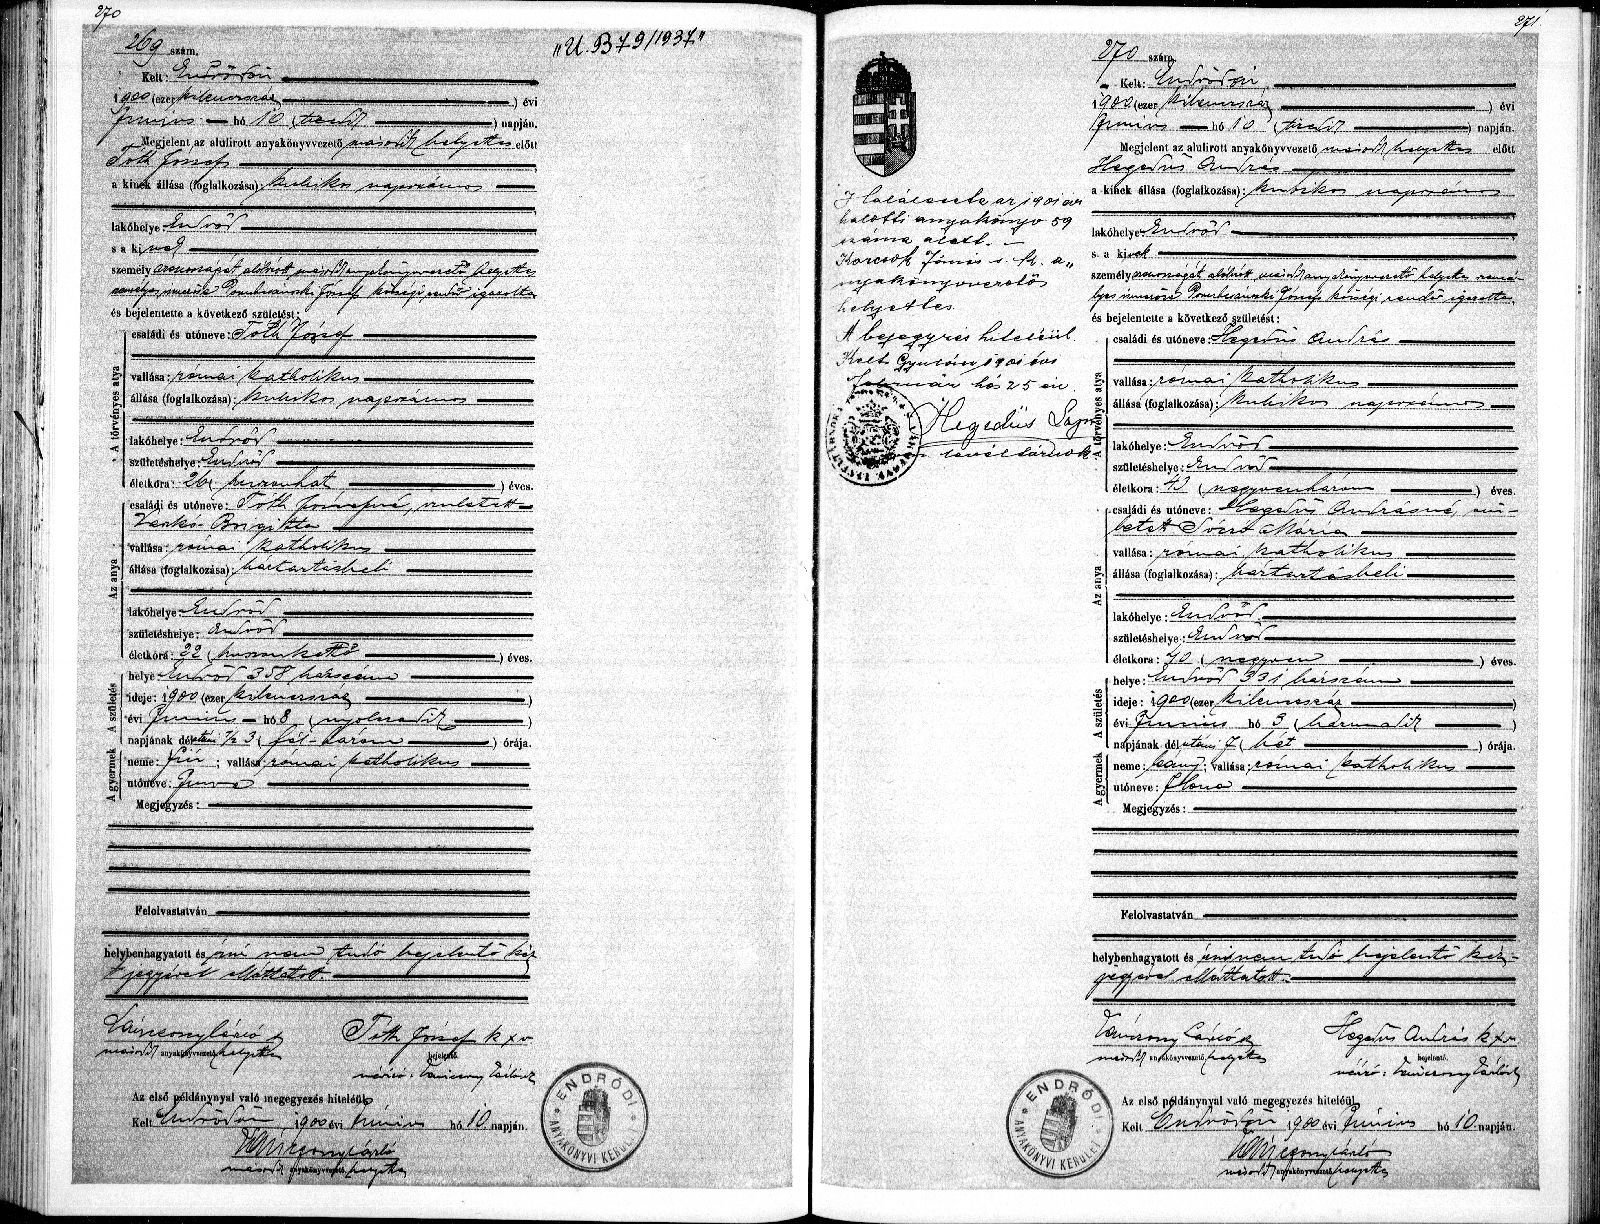 270
269 szám.
"U. B 79/1937"
Kelt: Endrődön
1900 (ezer kilencszáz ) évi
Junius hó 10 (tizedik ) napján.
Megjelent az alulirott anyakönyvvezető második helyettes előtt
Tóth József
a kinek állása (foglalkozása): kubikos napszámos
lakóhelye Endrőd
s a ki nek
személyazonosságát alólirott második anyakönyvvezető helyettes
József községi rendőr igazolta
és bejelentette a következő születést:
A törvényes atya
családi és utóneve: Tóth József
vallása: római katholikus
állása (foglalkozása): kubikos napszámos
lakóhelye: Endrőd
születéshelye: Endrőd
életkora: 26 (huszonhat ) éves.
Az anya
családi és utóneve: Tóth Józsefné, született
Brigitta
vallása: római katholikus
állása (foglalkozása): háztartásbeli
lakóhelye: Endrőd
születéshelye: Endrőd
életkora: 22 (huszonkettő ) éves.
A születés
helye: Endrőd 358 házszám
ideje: 1900 (ezer kilencszáz )
évi Junius hó 8 (nyolcadik )
napjának délutáni 1/2 3 (fél-három ) órája.
A gyermek
neme: fiú ; vallása: római katholikus
utóneve:
Megjegyzés:
Felolvastatván
helybenhagyatott és írni nem tudó bejelentő kéz
jegyével elláttatott.
Tóth József k x v
második anyakönyvvezető helyettes
bejelentő.
Az első példánynyal való megegyezés hiteléül
Kelt Endrődön 1900 évi Junius hó 10. napján.
második anyakönyvvezető helyettes
ENDRŐDI
ANYAKÖNYVI KERÜLET
271.
270 szám.
Kelt: Endrődön
1900 (ezer kilencszáz ) évi
Junius hó 10 (tizedik ) napján.
Megjelent az alulirott anyakönyvvezető második helyettes előtt
Hegedűs András
a kinek állása (foglalkozása): kubikos napszámos
lakóhelye Endrőd
s a kinek
személyazonosságát alólirott második anyakönyvvezető helyettes
József községi rendőr igazolta
és bejelentette a következő születést:
A törvényes atya
családi és utóneve: Hegedűs András
vallása: római katholikus
állása (foglalkozása): kubikos napszámos
lakóhelye: Endrőd
születéshelye: Endrőd
életkora: 43 (negyvenhárom ) éves.
Az anya
családi és utóneve: Hegedűs Andrásné, szü-
letett Mária
vallása: római katholikus
állása (foglalkozása): háztartásbeli
lakóhelye: Endrőd
születéshelye: Endrőd
életkora: 40 (negyven ) éves.
A születés
helye: Endrőd 331 házszám
ideje: 1900 (ezer kilencszáz )
évi Junius hó 3 (harmadik )
napjának délutáni 7 (hét ) órája.
A gyermek
neme: leány ; vallása: római katholikus
utóneve: Ilona
Megjegyzés:
Felolvastatván
helybenhagyatott és írni nem tudó bejelentő kéz-
jegyével elláttatott.
Hegedűs András k x v
második anyakönyvvezető helyettes
bejelentő.
Az első példánynyal való megegyezés hiteléül
Kelt Endrődön 1900 évi Junius hó 10. napján.
második anyakönyvvezető helyettes
ENDRŐDI
ANYAKÖNYVI KERÜLET
az 1901 évi
halotti anyakönyv 59
száma alatt. –
János s. k. a-
nyakönyvvezető
helyettes.
A bejegyzés hiteléül
Kelt Gyulán 1901 évi
Február hó 25 én
Hegedűs
levéltárnok